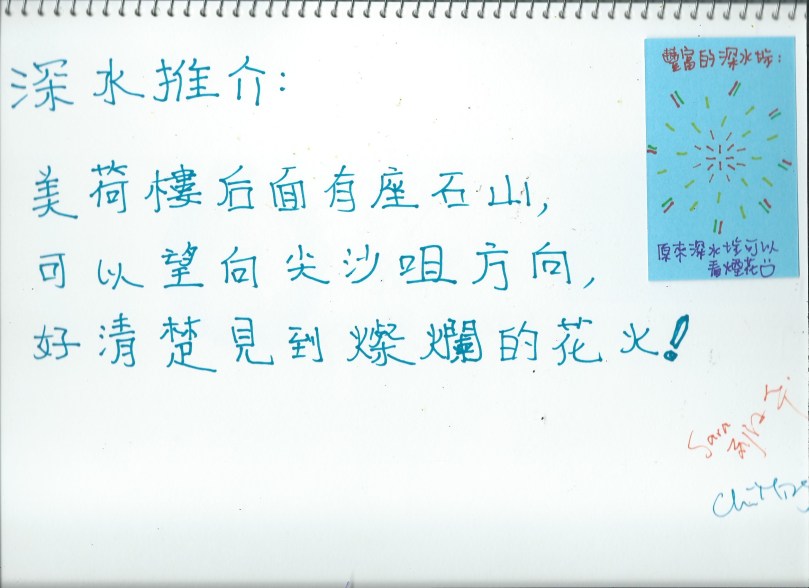 深水推介:
美荷樓后面有座石山,
可以望向尖沙咀方向,
好清楚見到燦爛的花火!
豐富的深水埗:
原來深水埗可以
看煙花
Sara